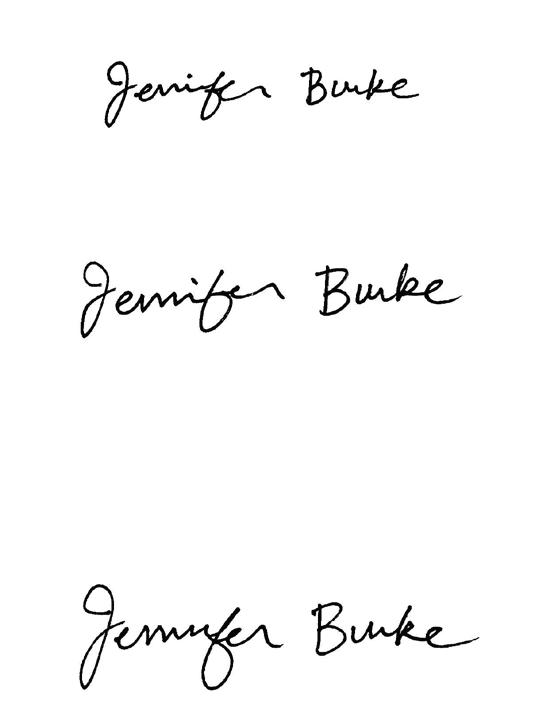 Jennifer Burke
Jennifer Burke
Jennifer Burke